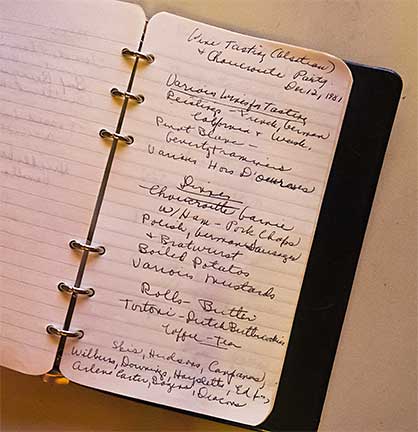 Wine Tasting (Alsatian)
& Choucroute Party
Dec 12, 1981
Various Wines for Tasting
Rieslings - French, German
California & Wash.
Pinot Blanc -
Gewurtraminers
Various Hors D'Oeuvres
Dinner
Choucroute Garnie
w/ Ham - Pork Chops
Polish, German Sausages
& Bratwurst
Boiled Potatos
Various Mustards
Rolls - Butter
Tortoni - Dutch Butter
Coffee - Tea
Hudsons,
Wilburs, Downings, Ed
Arlene Carter, Deacons